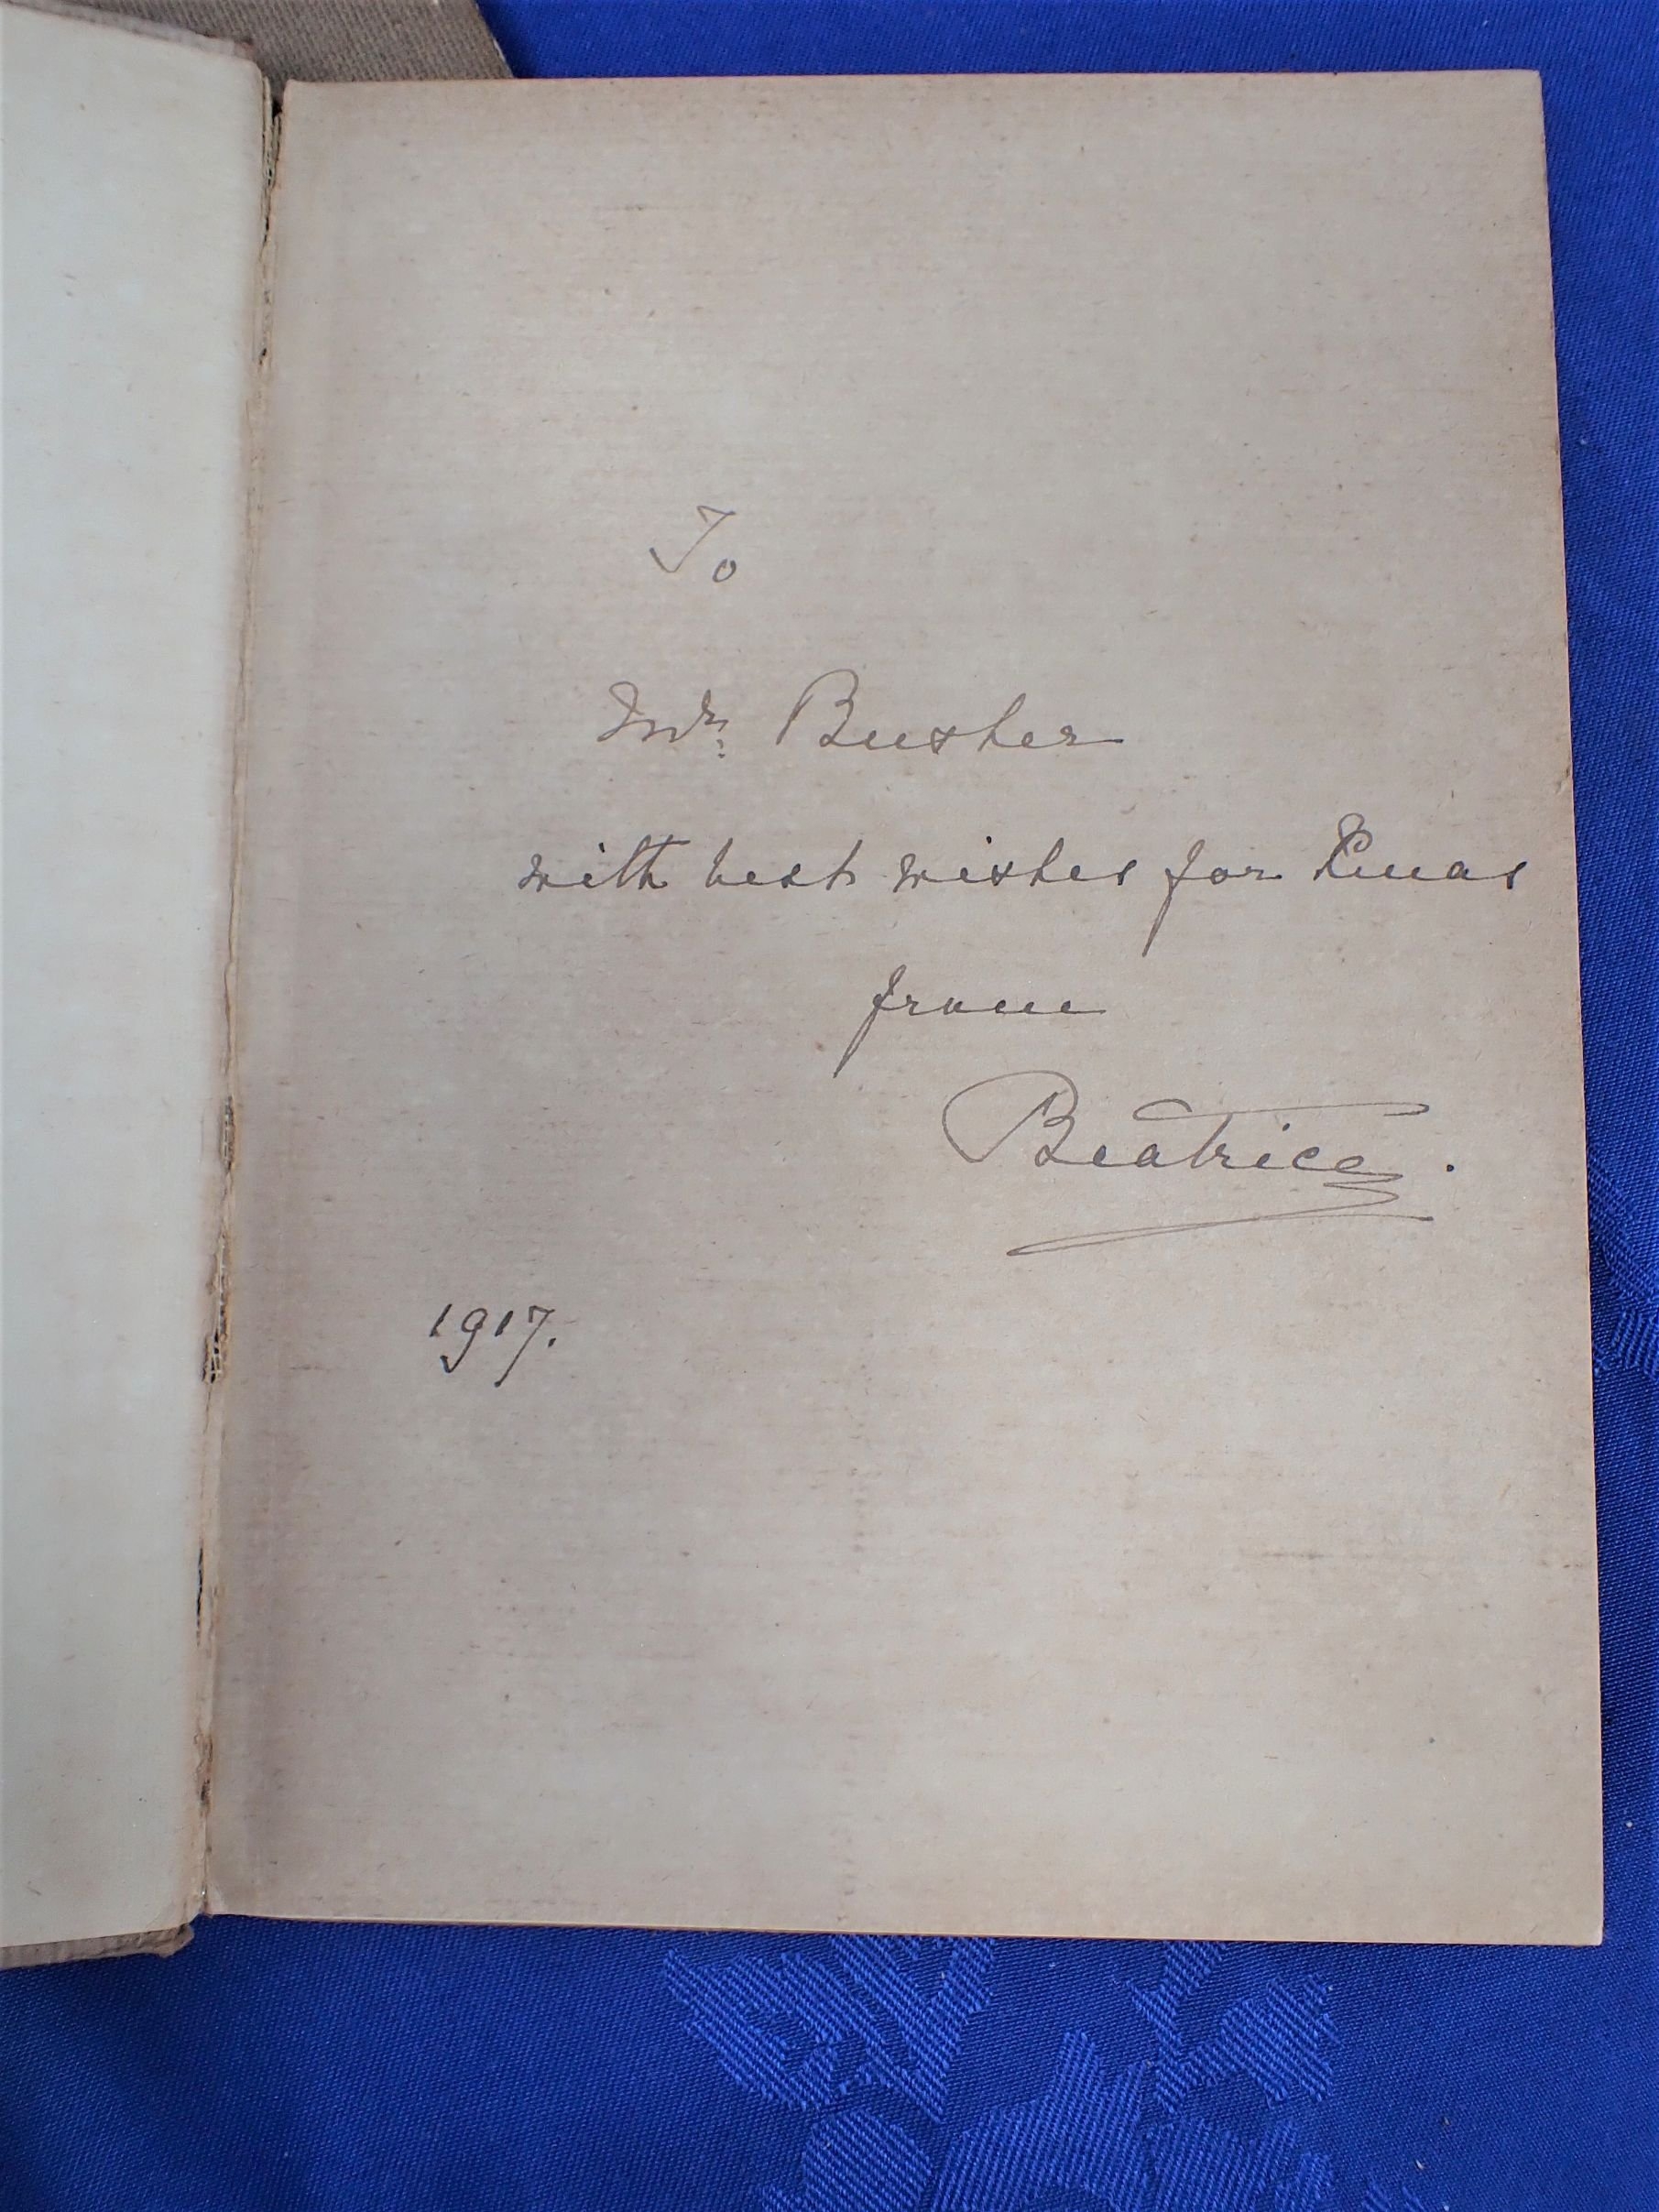 To
Mr. Busher
with best wishes for Xmas
from
Beatrice.
1917.